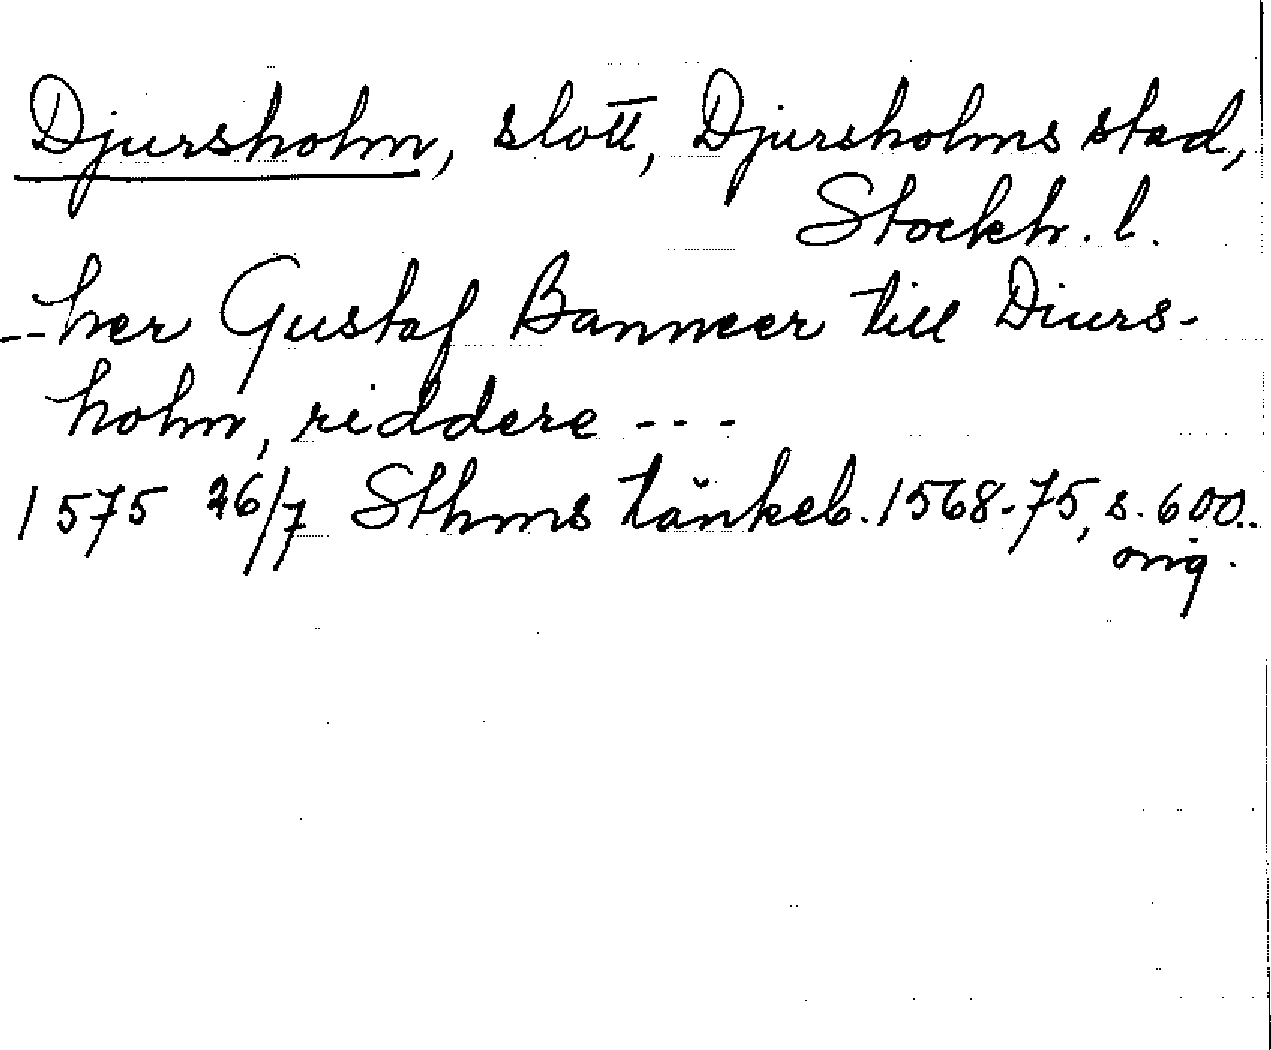 Djursholm, slott, Djursholms stad,
Stockh. l.
-- her Gustaf Banneer till Diurs-
holm, riddere ---
1575 26/7 Sthms tänkeb. 1568-75, s. 600.
orig.